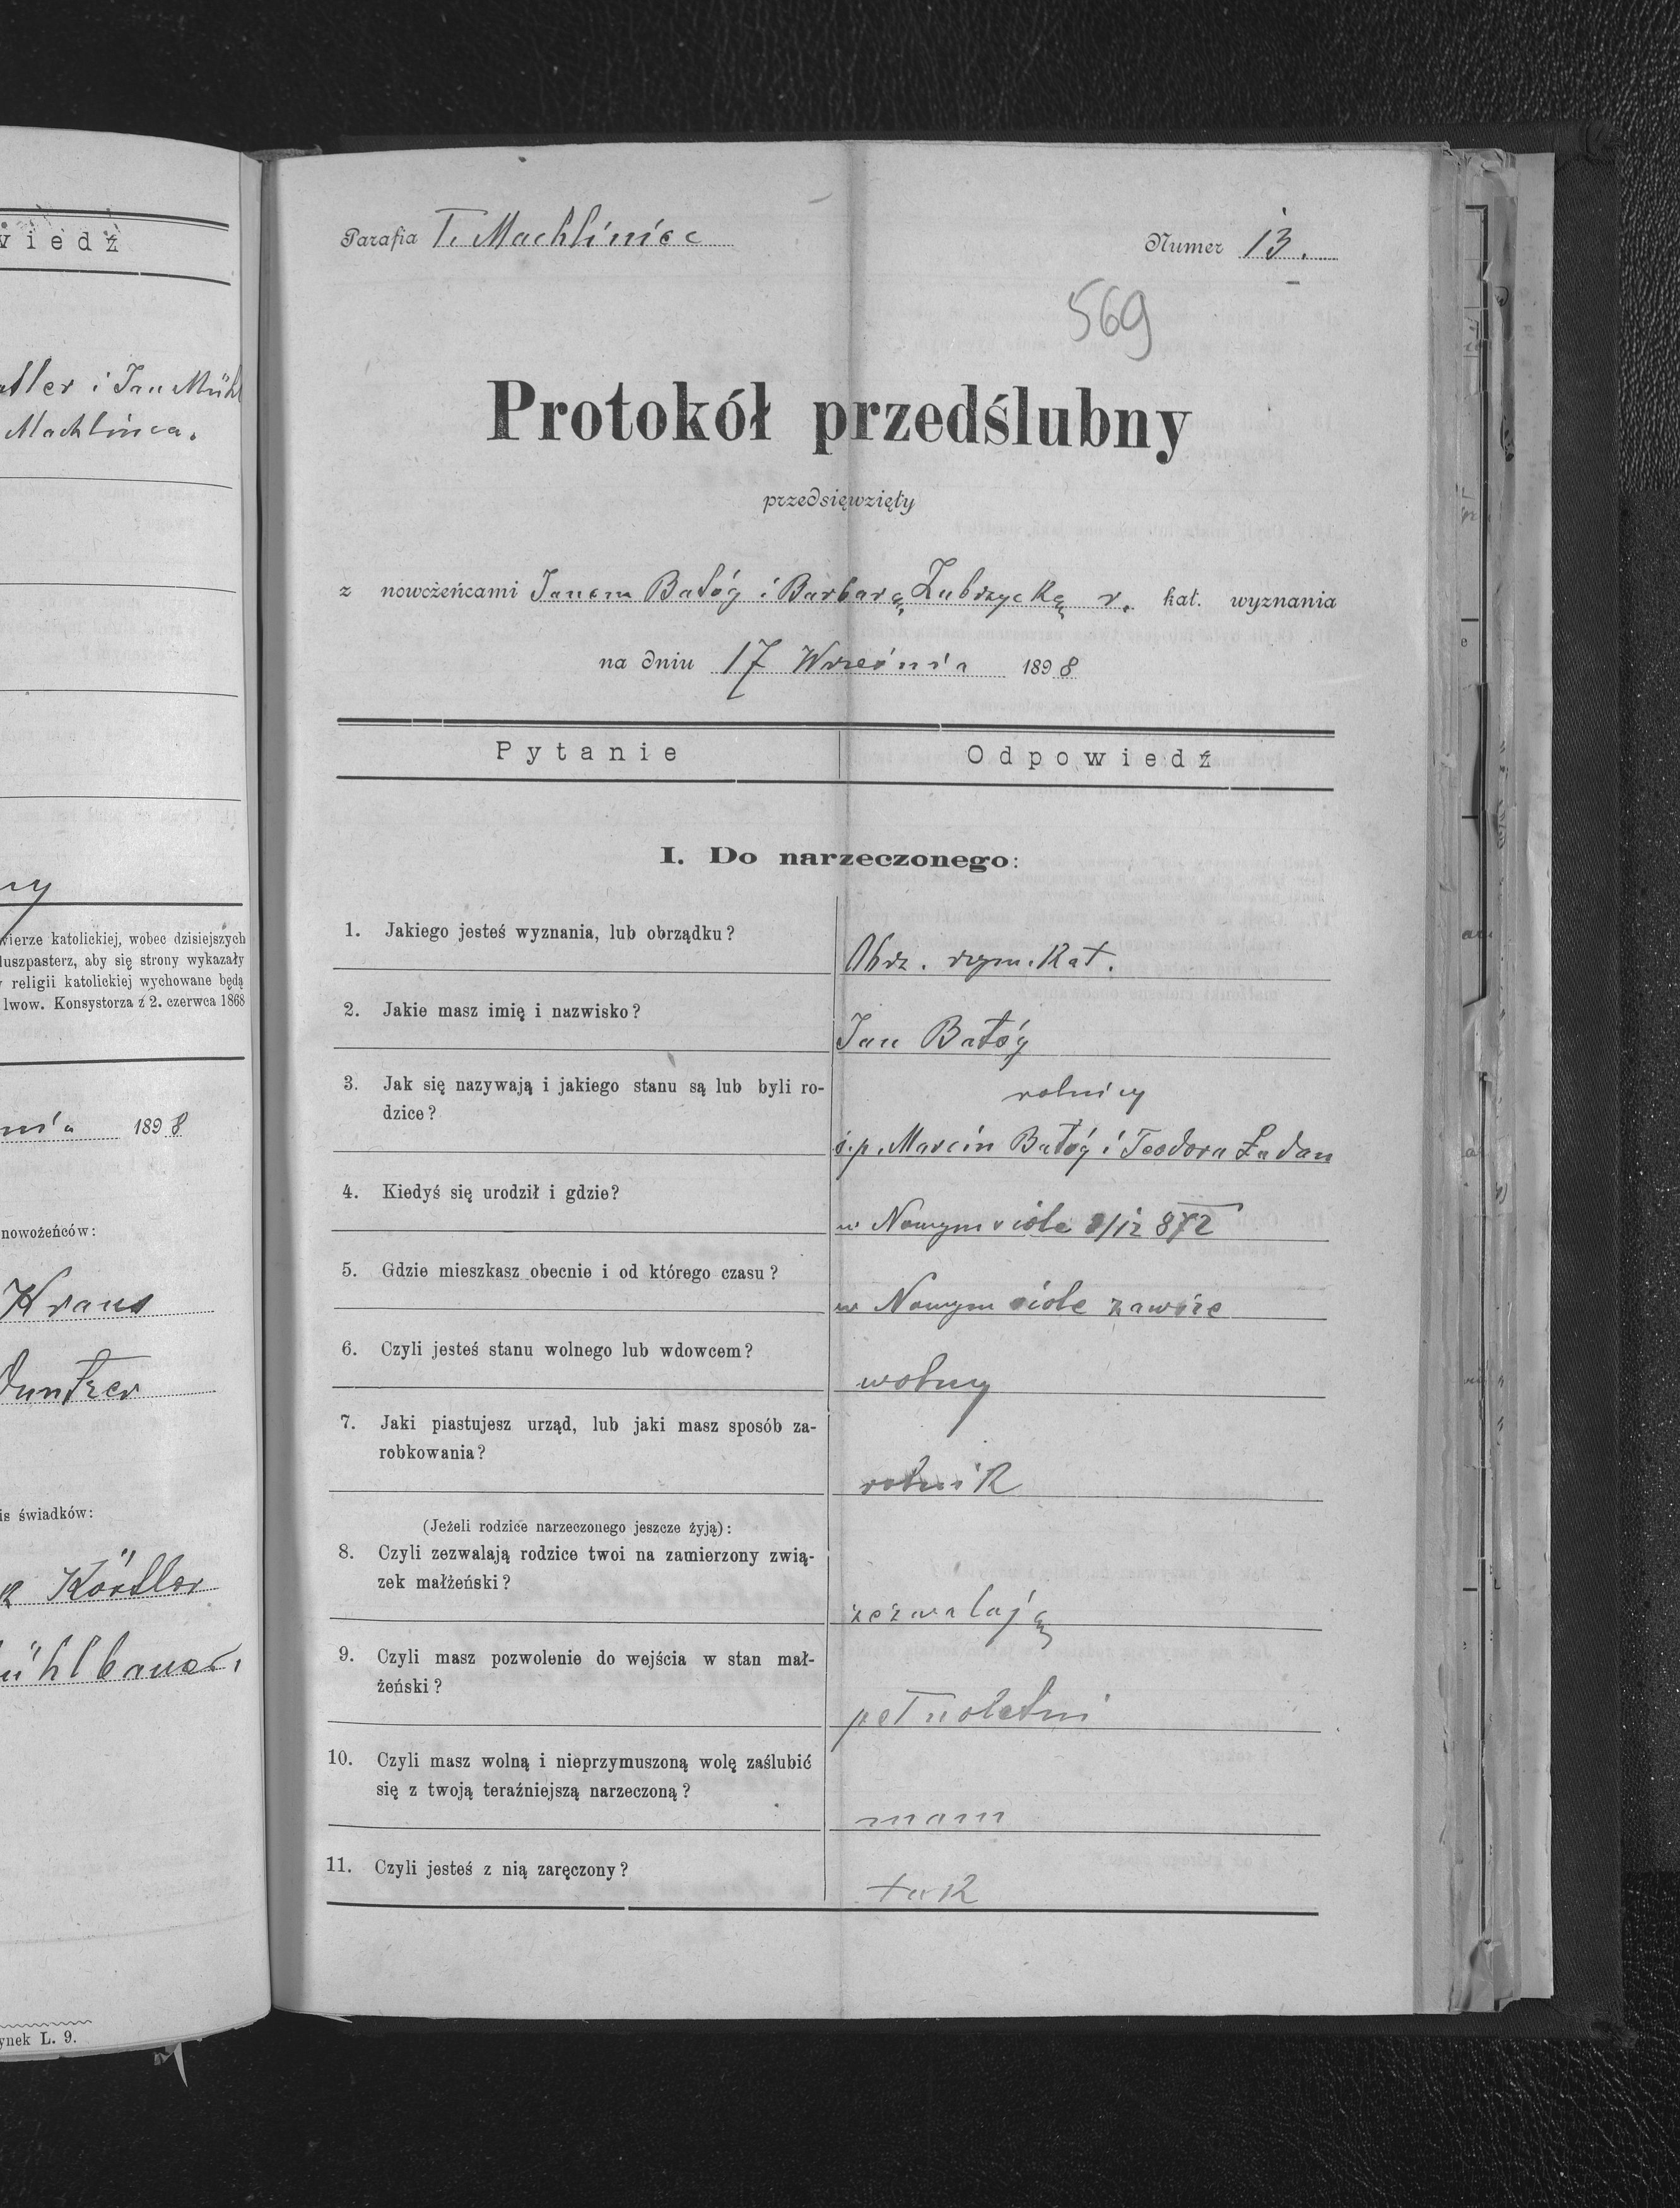 wiedź
atler i Jan Mühl
Machlińca.
wierze katolickiej, wobec dzisiejszych
duszpasterz, aby się strony wykazały
religii katolickiej wychowane będą
lwow. Konsystorza z 2. czerwca 1868
nia 1898
nowożeńców:
Kraus
is świadków:
Körtler
ühlbauer
ynek L. 9.
Parafia T. Machliniec
Numer 13.
569
Protokół przedślubny
przedsięwzięty
z nowożeńcami Janem Batóg i Barbarą Zubrzycką r. kat. wyznania
na dniu 17 Września 1898
Pytanie
Odpowiedź
I. Do narzeczonego:
1. Jakiego jesteś wyznania, lub obrządku?
Obrz. rzym. kat.
2. Jakie masz imię i nazwisko?
Jan Batóg
3. Jak się nazywają i jakiego stanu są lub byli ro-
dzice?
rolnicy
ś.p. Marcin Batóg i Teodora Ładan
4. Kiedyś się urodził i gdzie?
w Nowym siole 8/12 872
5. Gdzie mieszkasz obecnie i od którego czasu?
w Nowym siole zawsze
6. Czyli jesteś stanu wolnego lub wdowcem?
wolny
7. Jaki piastujesz urząd, lub jaki masz sposób za-
robkowania?
rolnik
(Jeżeli rodzice narzeczonego jeszcze żyją):
8. Czyli zezwalają rodzice twoi na zamierzony zwią-
zek małżeński?
zezwalają
9. Czyli masz pozwolenie do wejścia w stan mał-
żeński?
pełnoletni
10. Czyli masz wolną i nieprzymuszoną wolę zaślubić
się z twoją teraźniejszą narzeczoną?
mam
11. Czyli jesteś z nią zaręczony?
tak